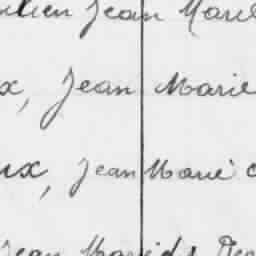 lien Jean Marie
x, Jean Marie
ux, Jean Marie
Jean Marie